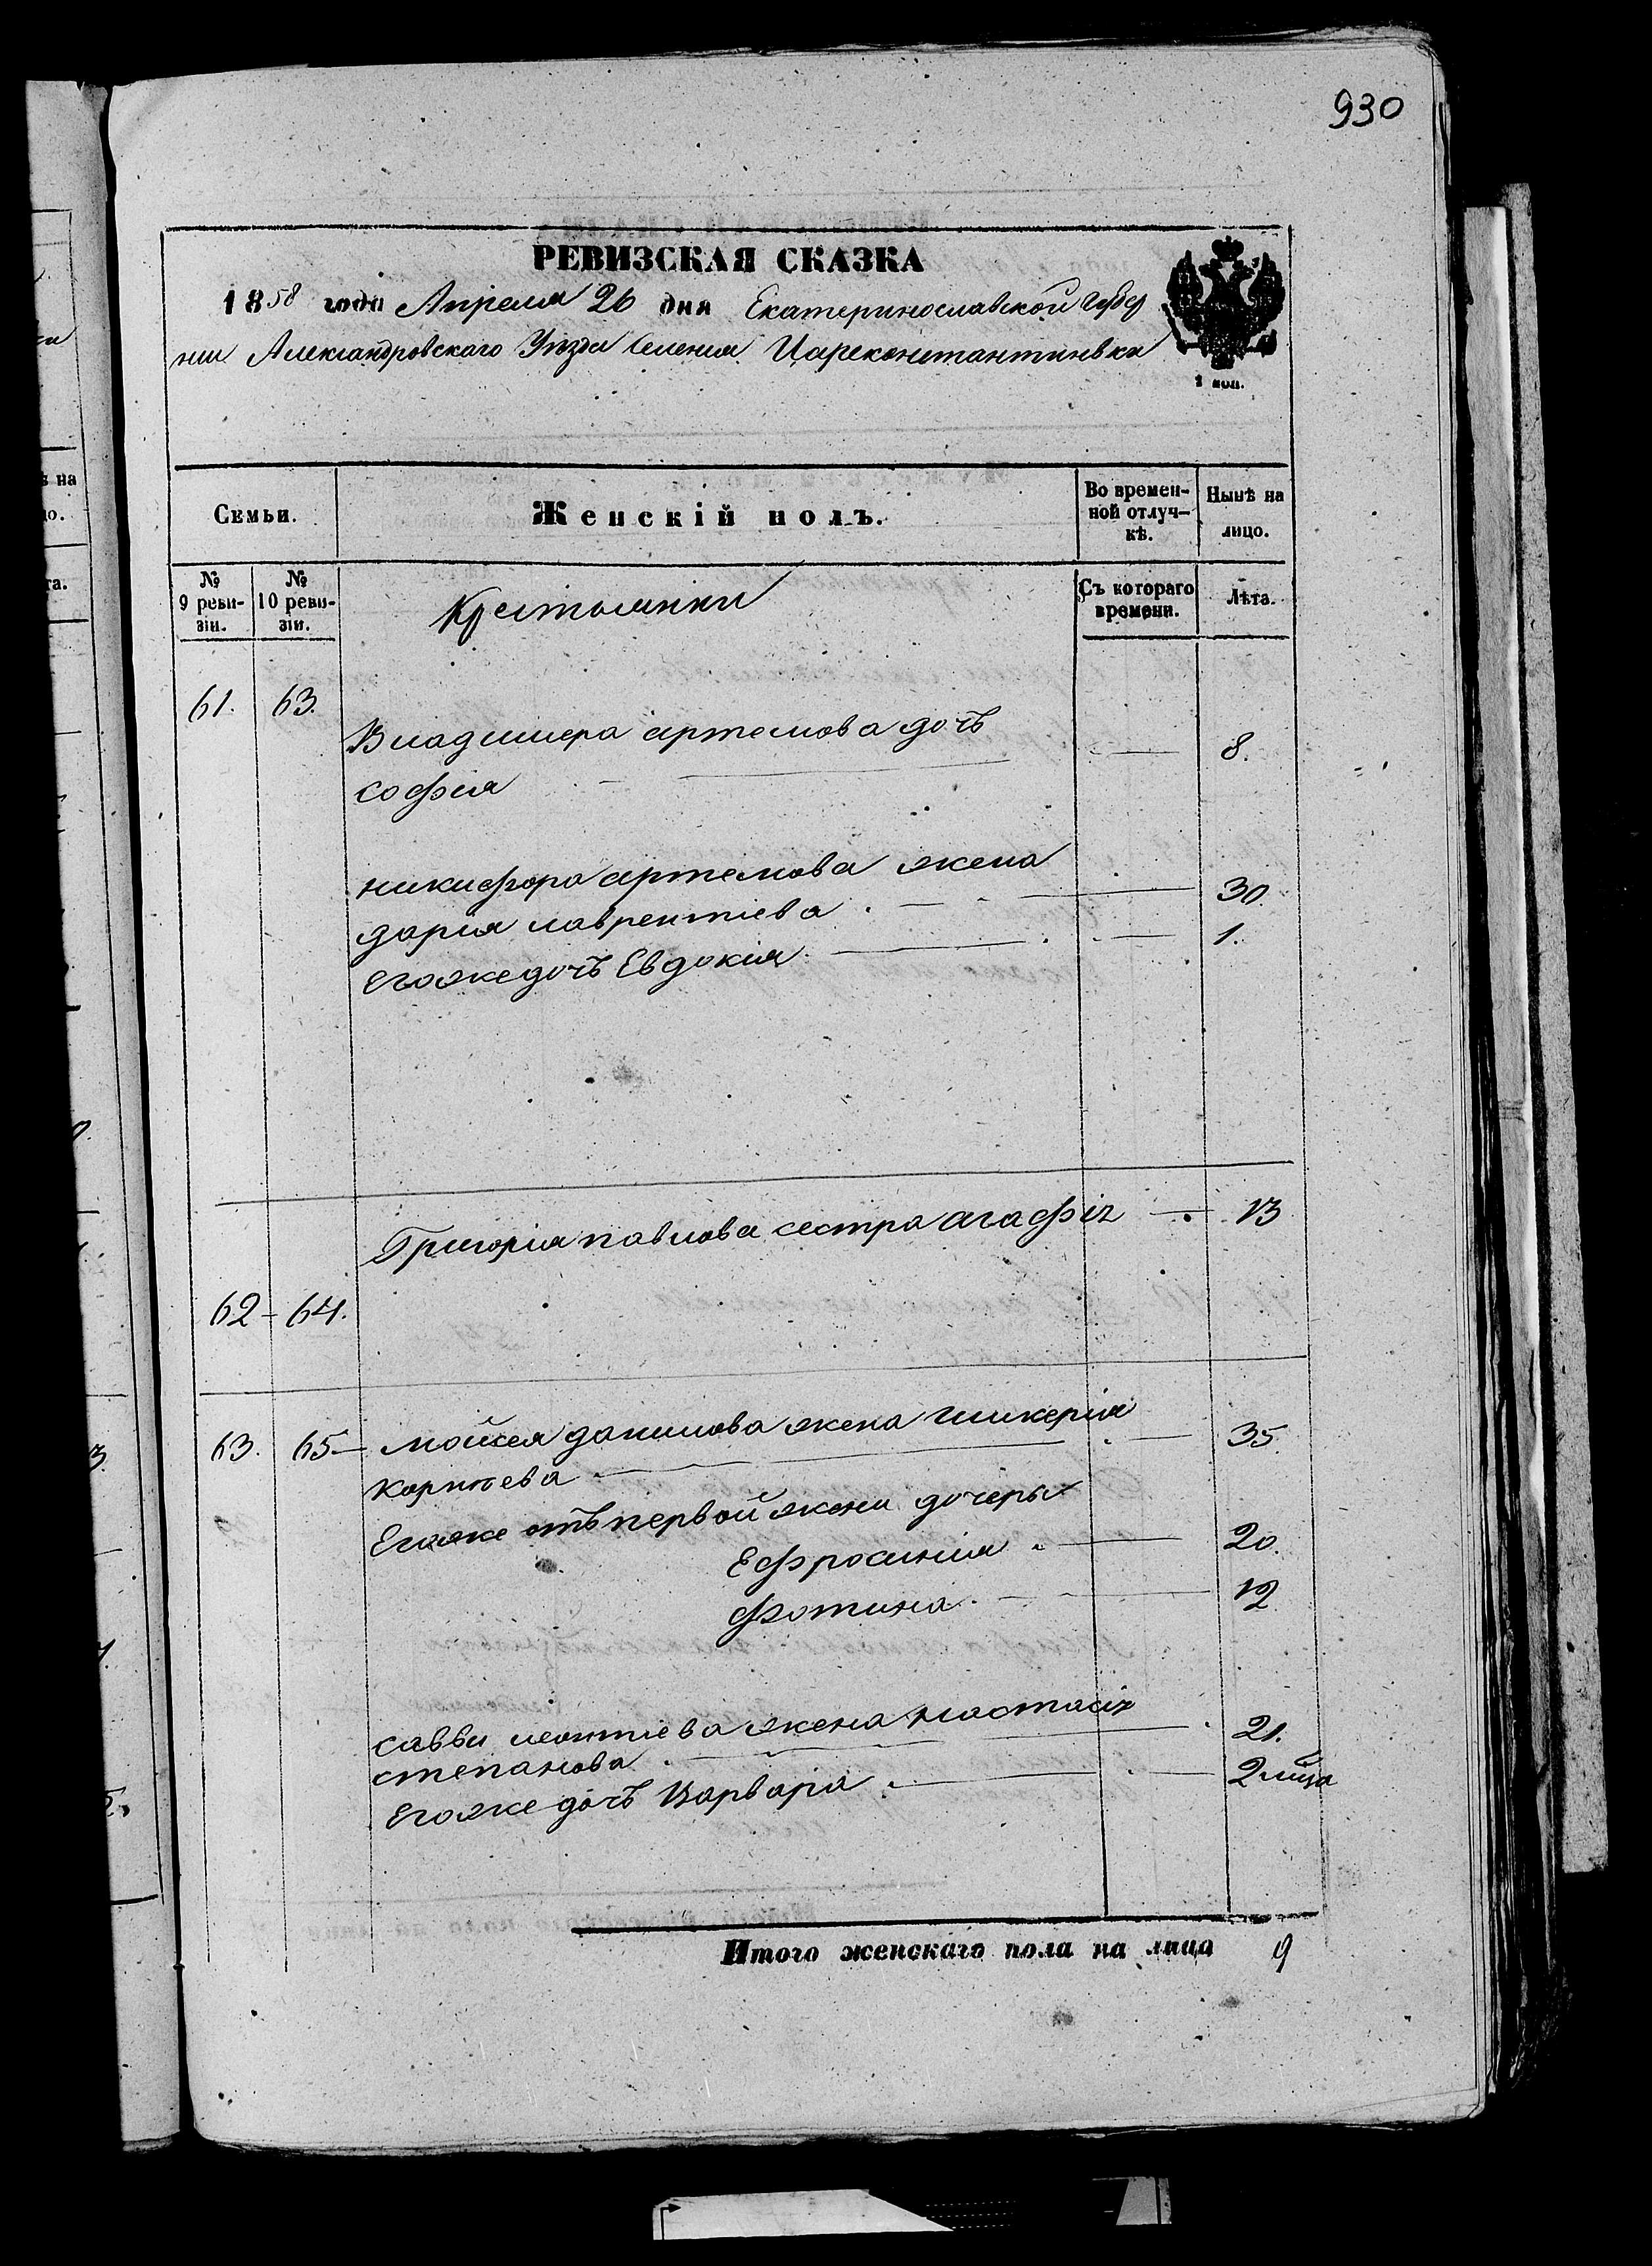 930
РЕВИЗСКАЯ СКАЗКА
1858 года Апреля 26 дня Екатеринославской Губер
нии Александровского Уезда Селения Цареконстантиневка
1 коп.
Семьи.
Женскій полъ.
Во времен-
ной отлуч-
кѣ.
Нынѣ на
лицо.
№ 9 реви-
зіи.
№ 10 реви-
зіи.
Крестьянки
Съ котораго
времени.
Лѣта.
61. 63.
Владимера артемова дочъ
софия 8.
никифора артемова жена
дария лаврентіева 30.
Егоже дочъ Евдокія 1.
Григория павлова сестра агафія 13
62 - 64.
63. 65 - мойсея данилова жена гликерія
корнѣева 35.
Егоже отъ первой жени дочеры
Ефросиния 20.
фотина 12
саввы леонтіева жена настасія
степанова 21.
Егоже дочъ Варвара 2 лица
Итого женскаго пола на лицо 9